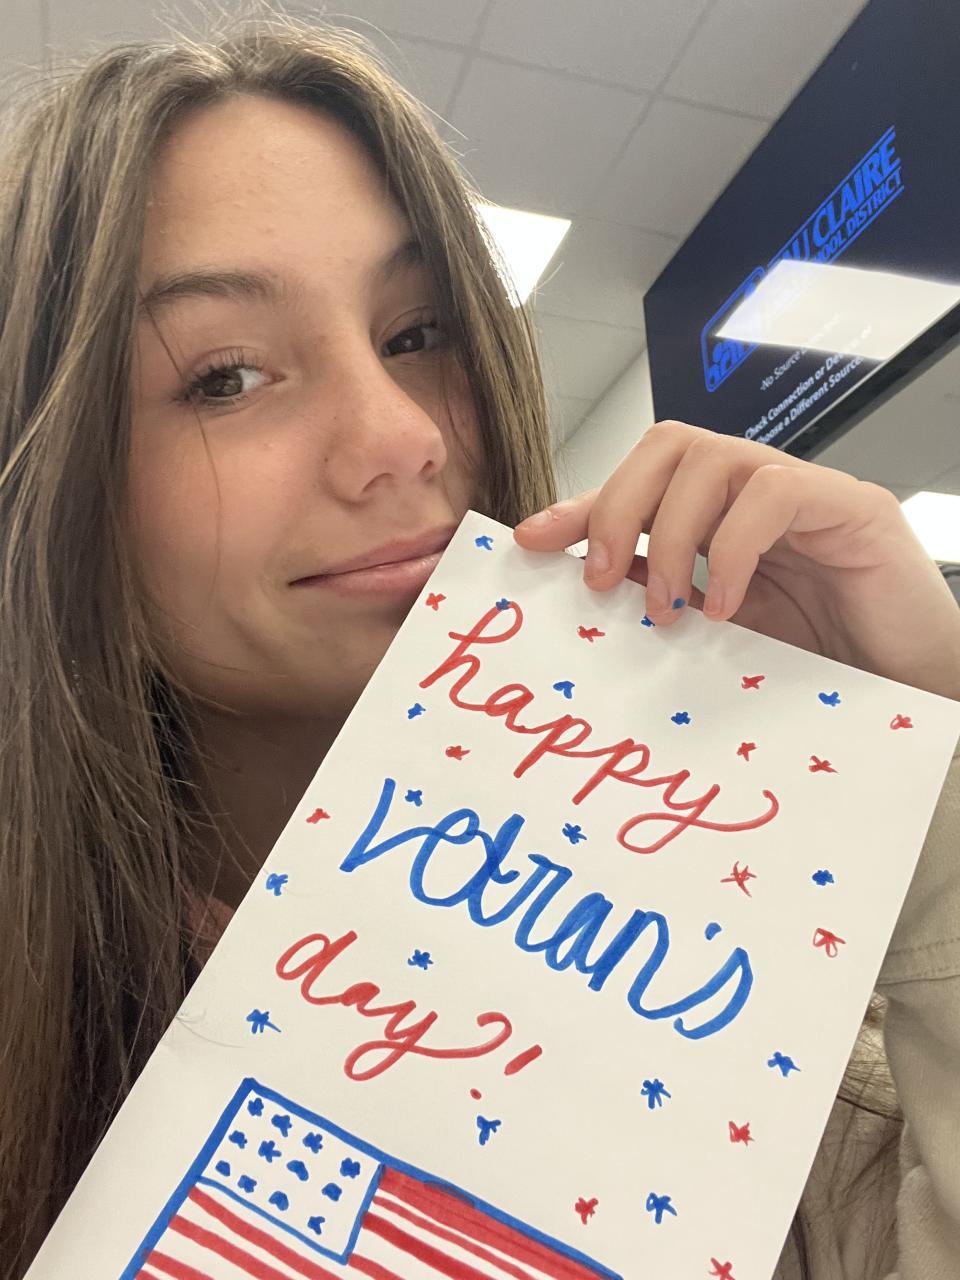 happy
vetran's
day!
EAU CLAIRE
SCHOOL DISTRICT
-No Source
Check Connection or
Choose a Different Source